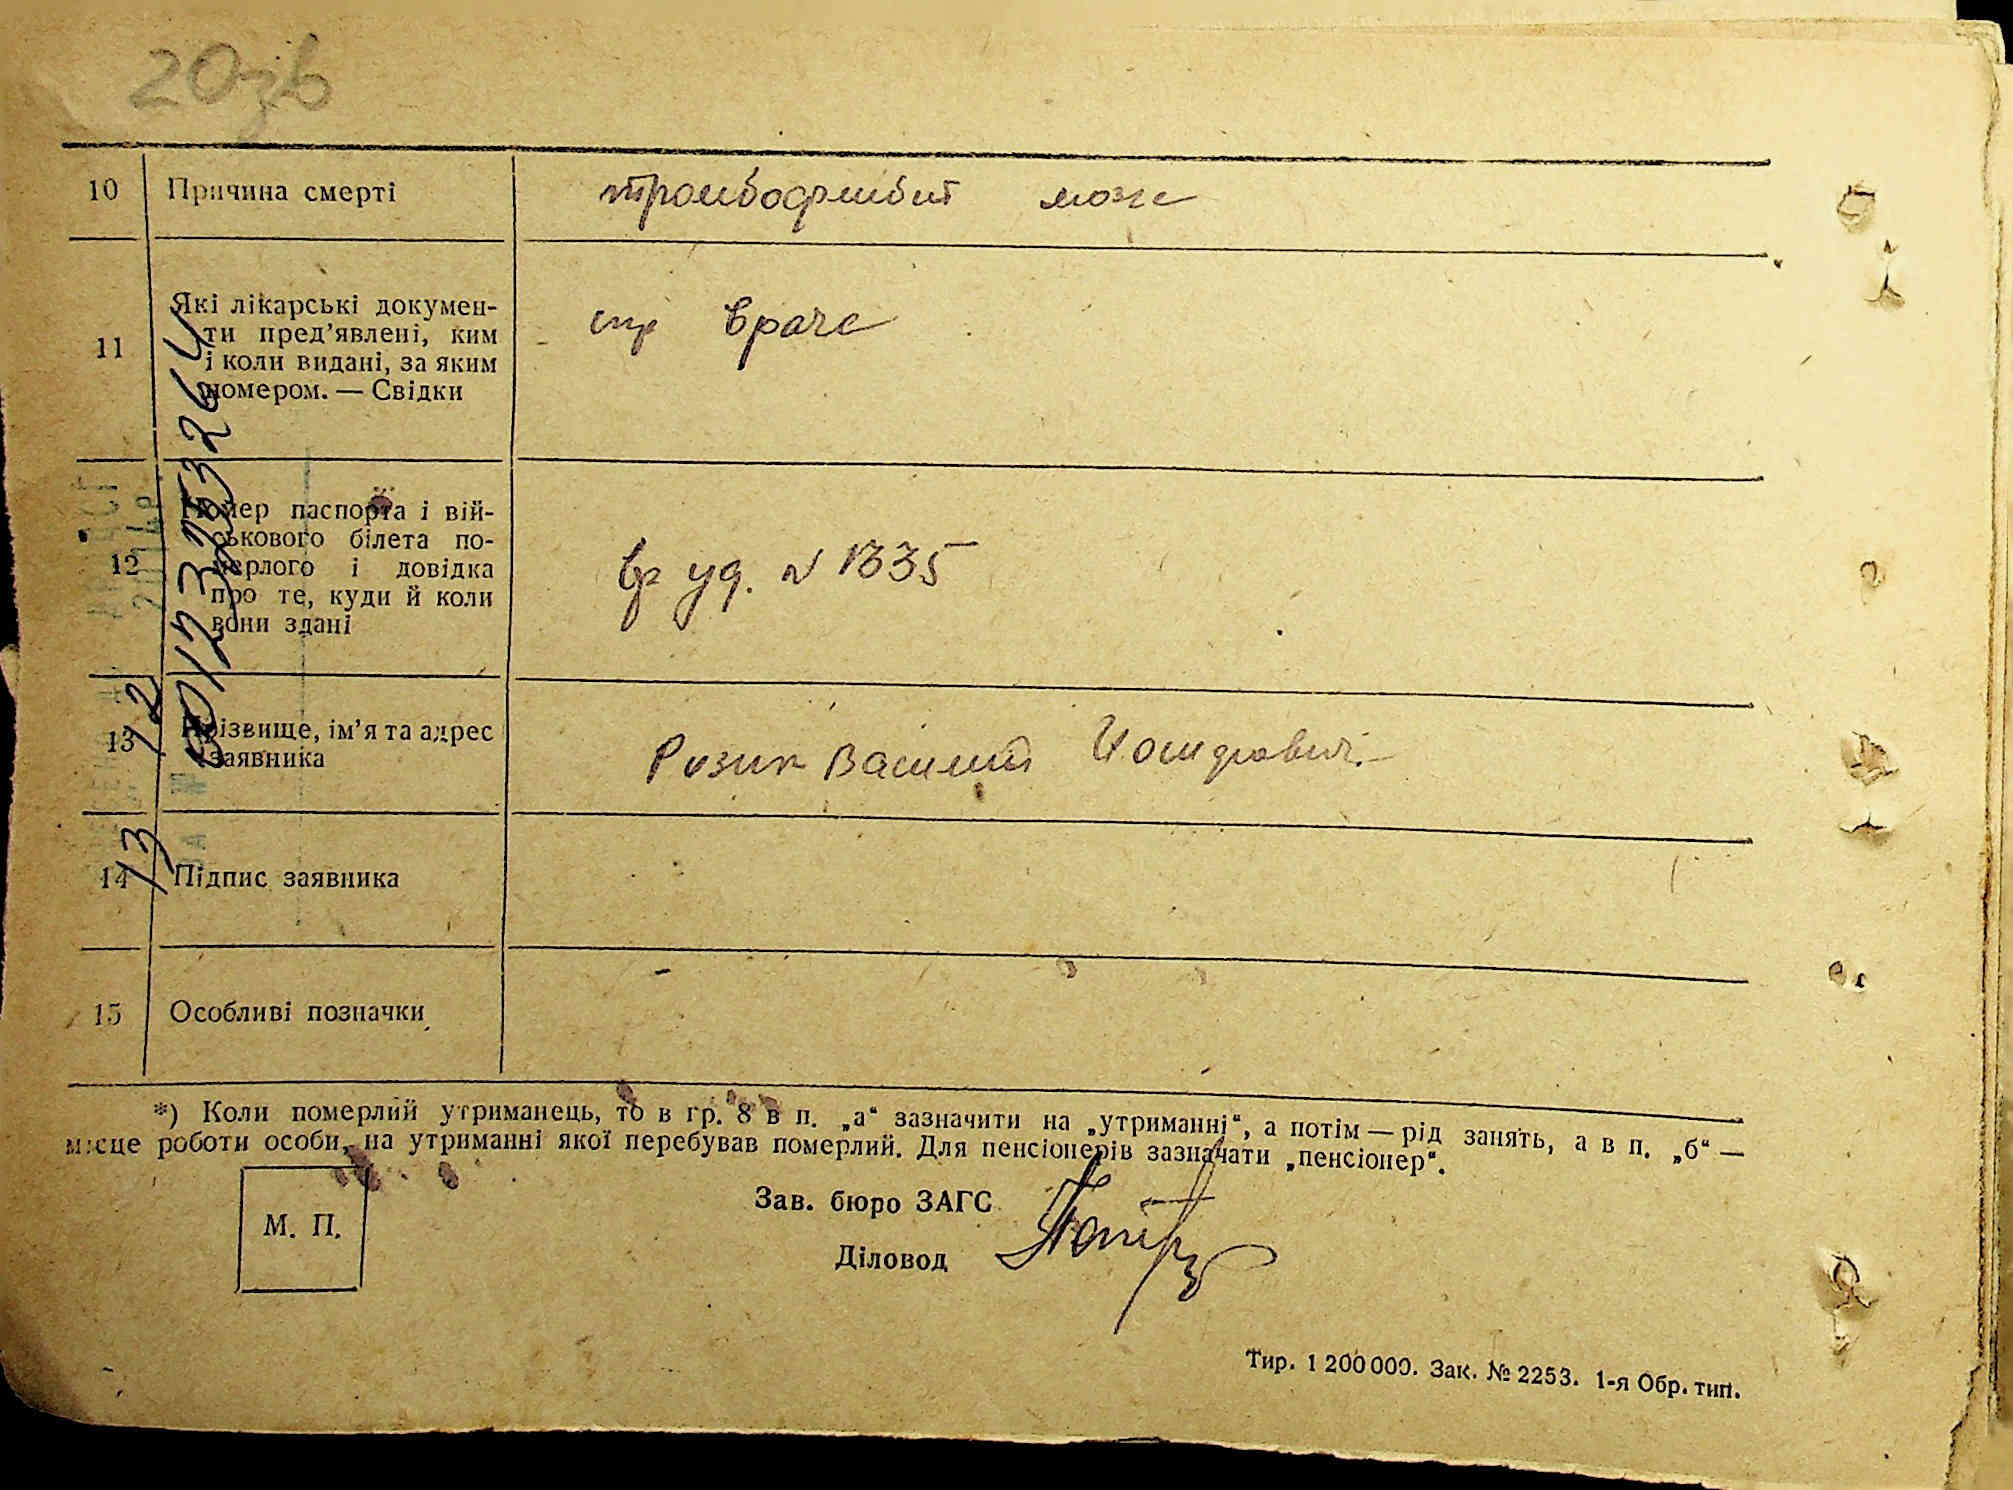 20зв
10 Причина смерті тромбофлибит
11 Які лікарські докумен-
ти пред’явлені, ким
і коли видані, за яким
номером. — Свідки
спр врача
12 Номер паспорта і вій-
ськового білета по-
мерлого і довідка
про те, куди й коли
вони здані
вр уд. N 1335
13 Прізвище, ім’я та адрес
заявника
Василий
14 Підпис заявника
15 Особливі позначки
*) Коли померлий утриманець, то в гр. 8 в п. „а“ зазначити на „утриманні“, а потім — рід занять, а в п. „б“ —
місце роботи особи, на утриманні якої перебував померлий. Для пенсіонерів зазначати „пенсіонер“.
М. П.
Зав. бюро ЗАГС
Діловод
Тир. 1 200 000. Зак. № 2253. 1-я Обр. тип.
12
13